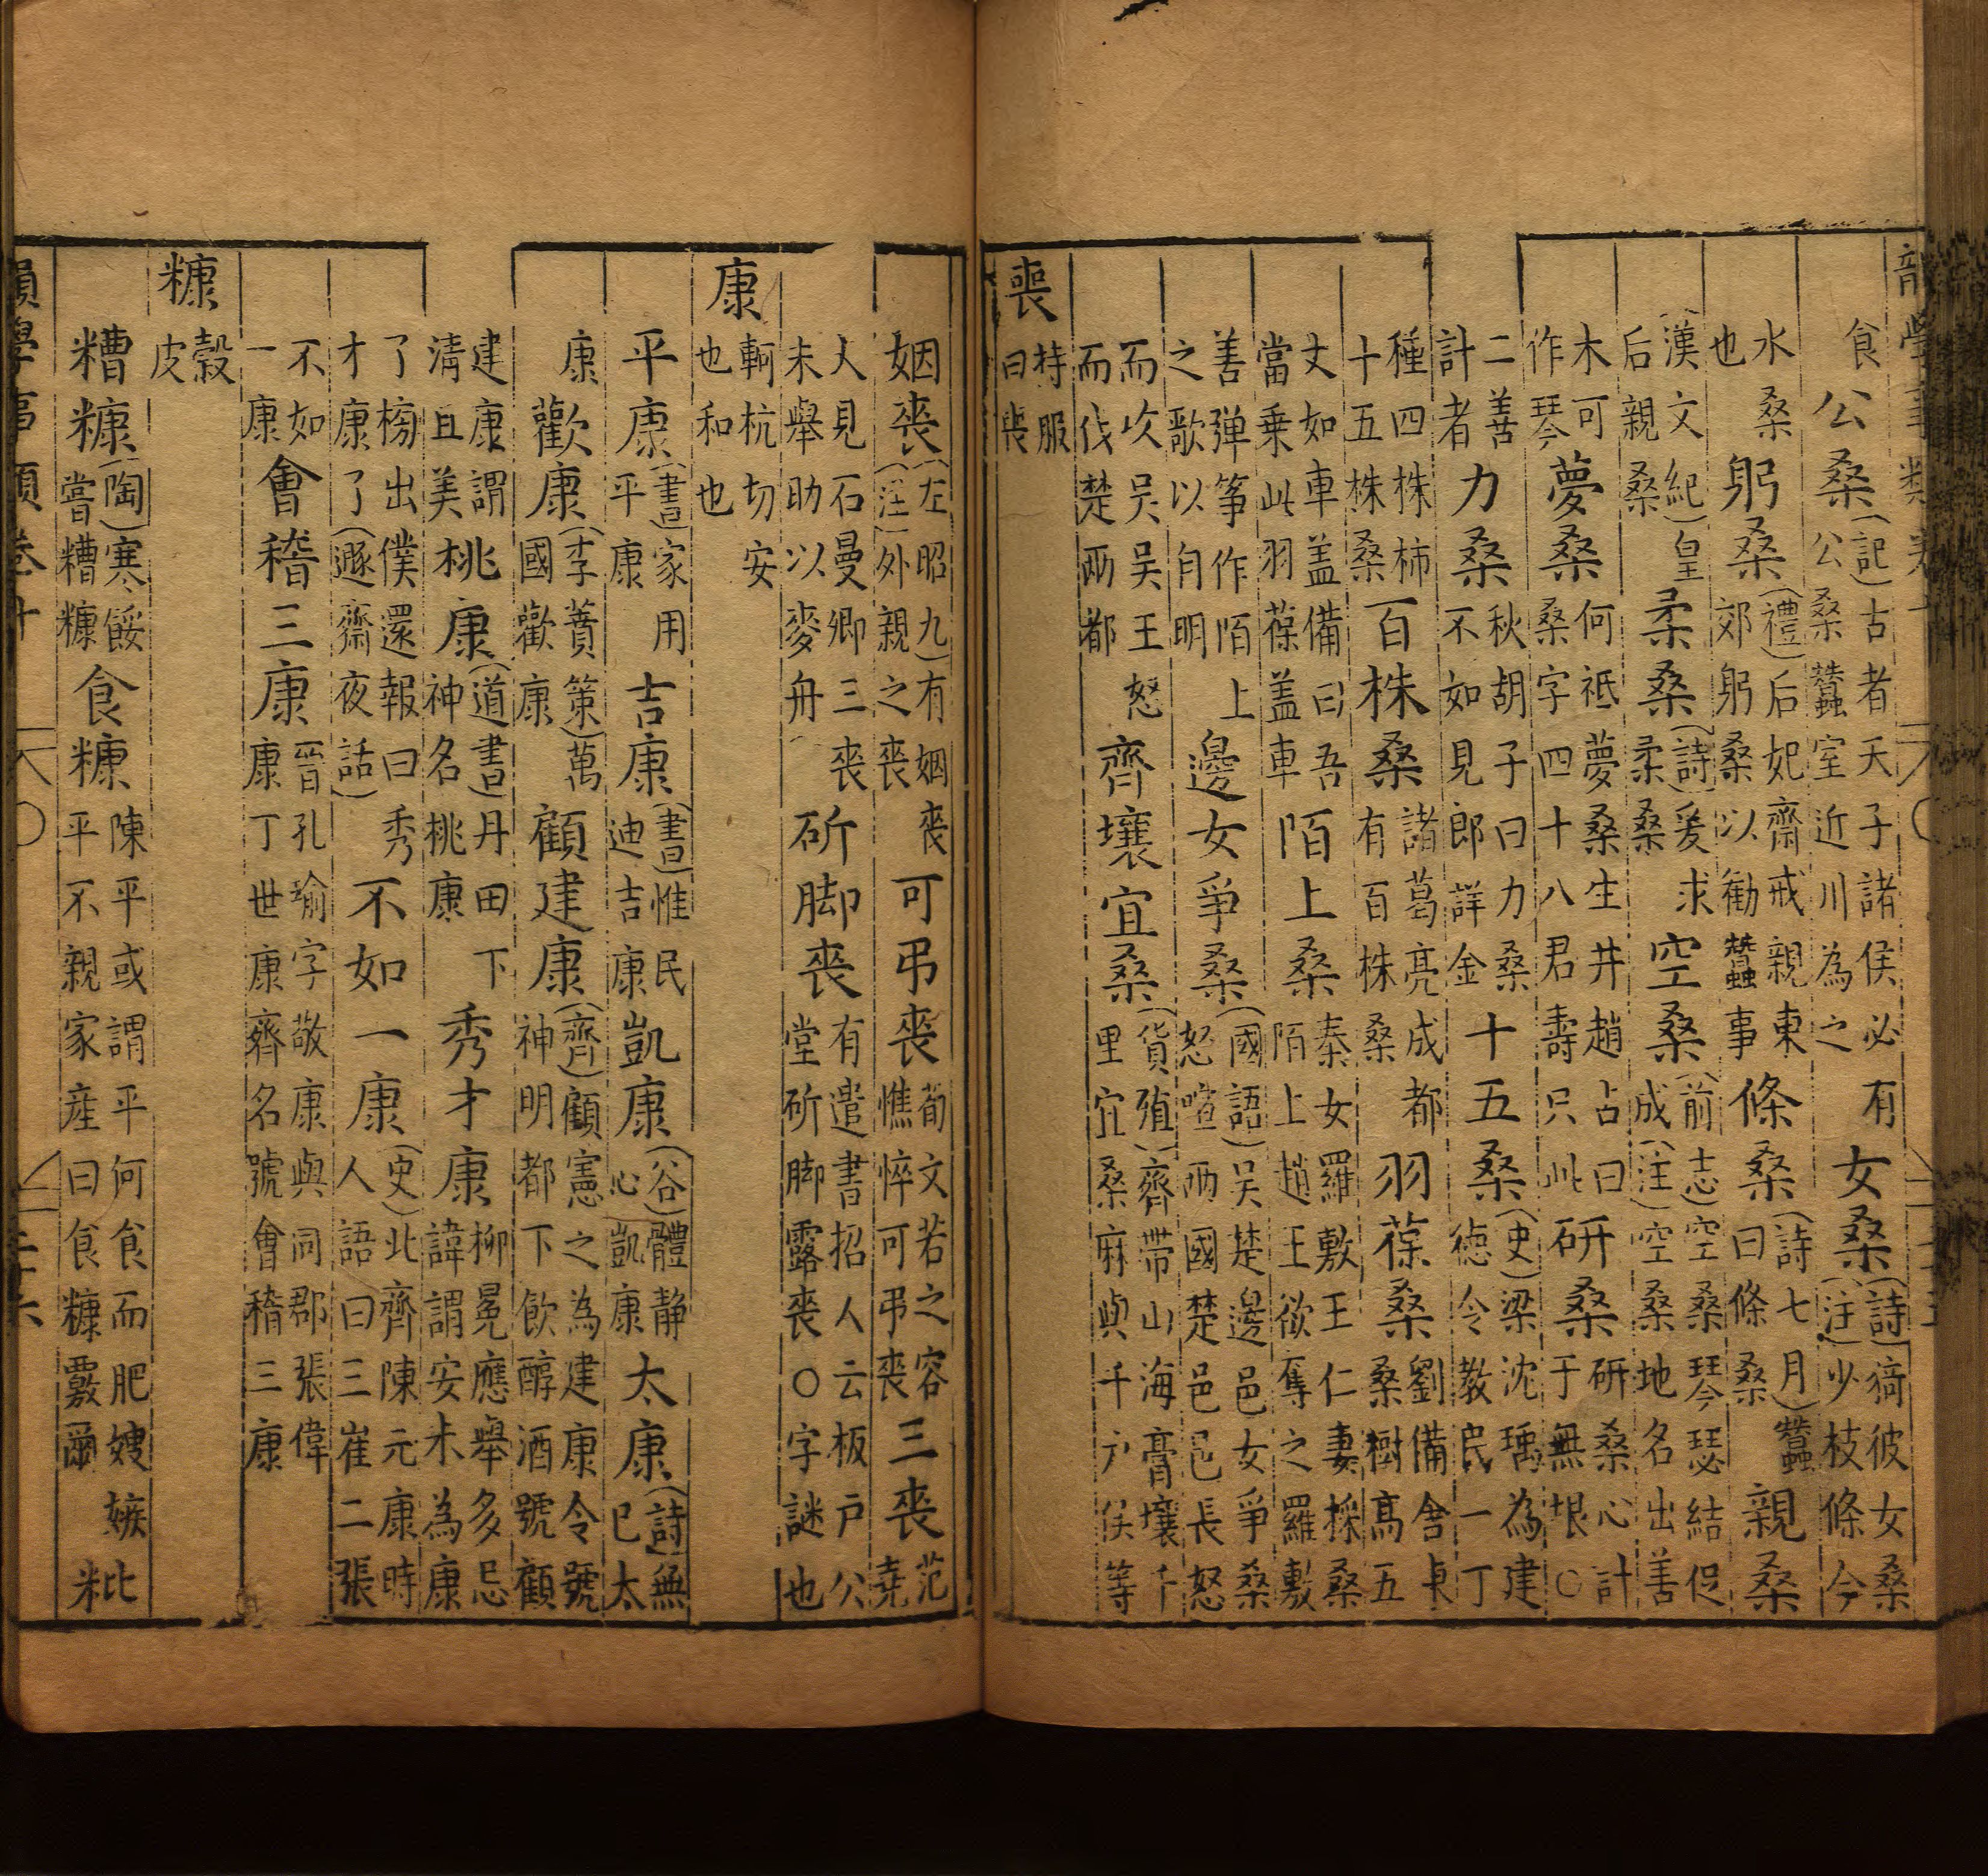 食 公桑(記)古者天子諸侯必有公桑蠶室近川為之 女桑(詩)猗彼女桑(注)少枝條今
水桑也 躬桑(禮)后妃齋戒親東郊躬桑以勸蠶事 條桑(詩七月)蠶曰條桑 親桑
(漢文紀)皇后親桑 柔桑(詩)爰求柔桑 空桑(前志)空桑琴瑟結促成(注)空桑地名出善
木可作琴 夢桑何祗夢桑生井趙占曰桑字四十八君壽只此 研桑研桑心計于無垠○
二善計者 力桑秋胡子曰力桑不如見郎詳金 十五桑(史)梁沈瑀為建德令教民一丁
種四株柿十五株桑 百株桑諸葛亮成都有百株桑 羽葆桑劉備舍東桑樹高五
丈如車盖備曰吾當乗此羽葆盖車 陌上桑秦女羅敷王仁妻採桑陌上趙王欲奪之羅敷
善弹筝作陌上之歌以自明 邊女爭桑(國語)吴楚邊邑女爭桑怒喧兩國楚邑邑長怒
而攻吴吴王怒而伐楚兩都 齊壤宜桑(貨殖)齊帶山海膏壤千里宜桑麻與千户侯等
喪 持服曰喪
姻喪(左昭九)有姻喪(注)外親之喪 可弔喪荀文若之容憔悴可弔喪 三喪范堯
人見石曼卿三喪未舉助以麥舟 斫脚喪有遣書招人云板户公堂斫脚露喪○字謎也
康 軻杭切安也和也
平康(書)家用平康 吉康(書)惟民迪吉康 凱康(谷)體静心凱康 太康(詩)無已太
康 歡康(李蕡策)萬國歡康 顧建康(齊)顧憲之為建康令號神明都下飲醇酒號顧
建康謂清且美 桃康(道書)丹田下神名桃康 秀才康柳冕應舉多忌諱謂安未為康
了榜出僕還報曰秀才康了(遯齋夜話) 不如一康(史)北齊陳元康時人語曰三崔二張
不如一康 會稽三康(晉)孔瑜字敬康與同郡張偉康丁世康齊名號會稽三康
糠 穀皮
糟糠(陶)寒餒嘗糟糠 食糠陳平或謂平何食而肥嫂嫉平不親家産曰食糠覈爾 粃
韻學事類卷十